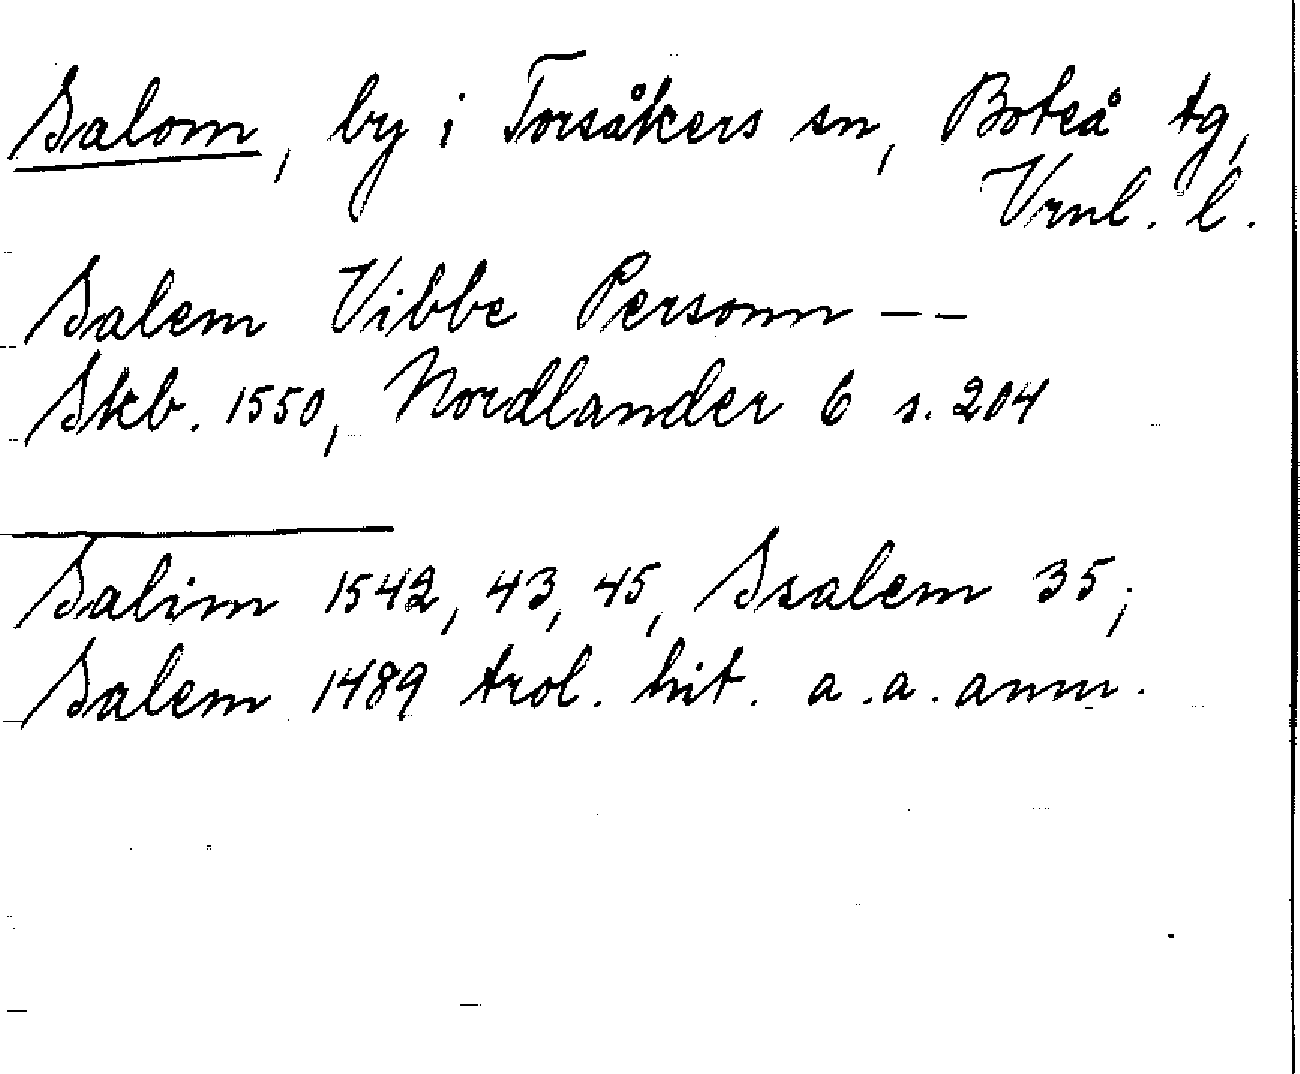 Salom, by i Torsåkers sn, Boteå tg,
Vrnl. l.
Salem Vibbe Personn – –
Skb. 1550, Nordlander 6 s. 204
Salim 1542, 43, 45, Ssalem 35;
Salem 1489 trol. hit. a.a. anm.